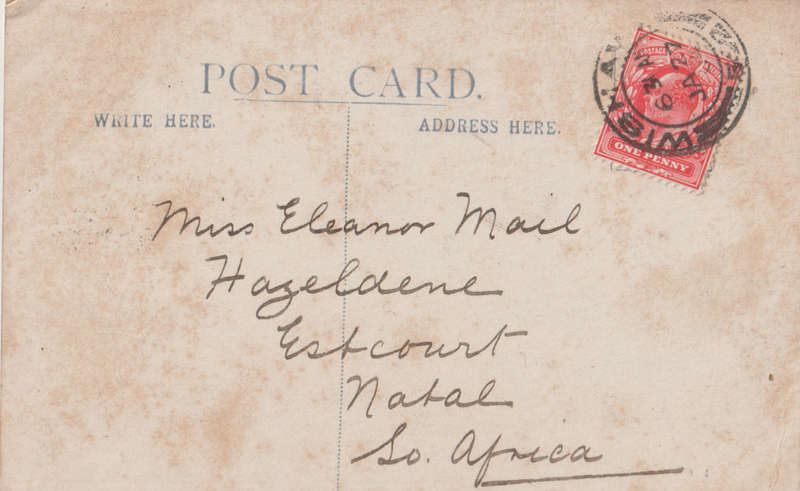 POST CARD.
WRITE HERE.
ADDRESS HERE.
POSTAGE
ONE PENNY
Miss Eleanor Mail
Hazeldene
Estcourt
Natal
So. Africa